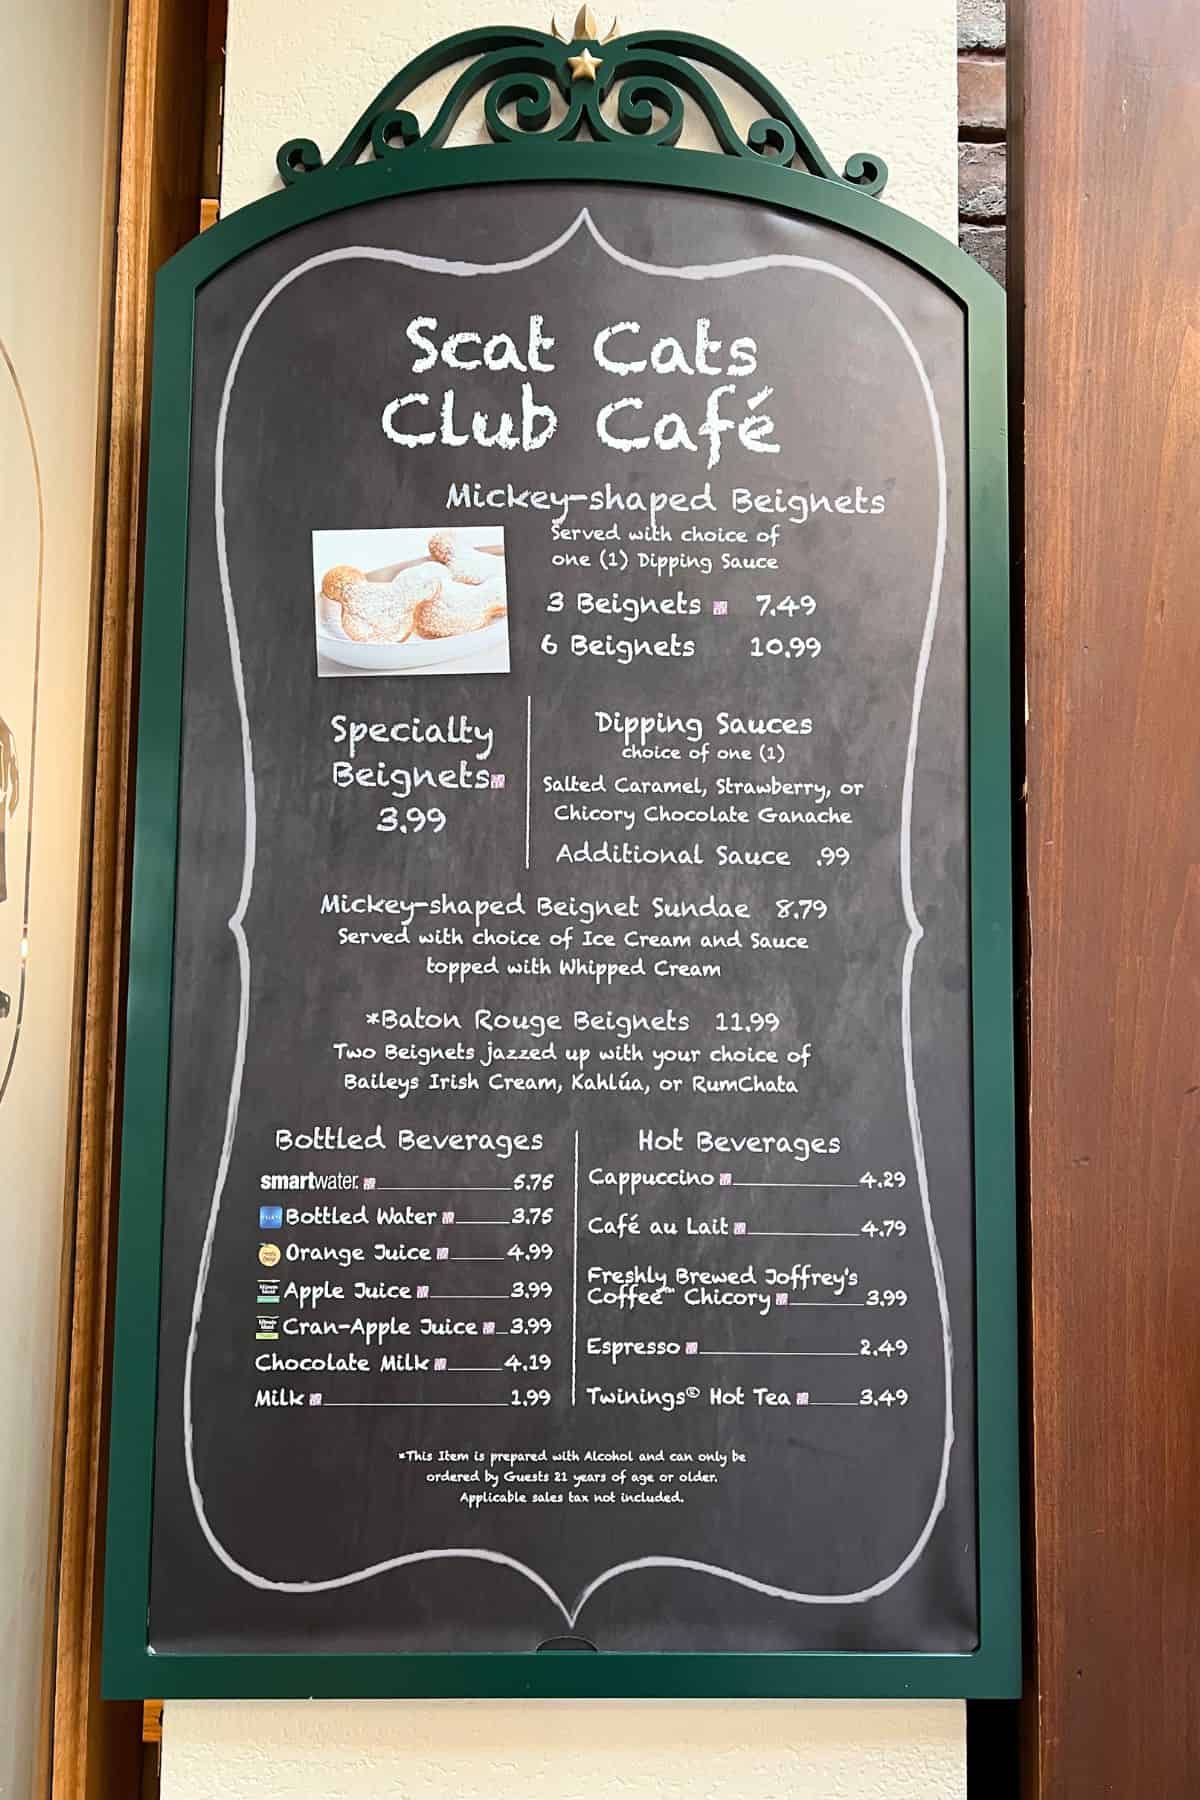 Scat Cats
Club Café
Mickey-shaped Beignets
Served with choice of
one (1) Dipping Sauce
3 Beignets 7.49
6 Beignets 10.99
Specialty
Beignets
3.99
Dipping Sauces
choice of one (1)
Salted Caramel, Strawberry, or
Chicory Chocolate Ganache
Additional Sauce .99
Mickey-shaped Beignet Sundae 8.79
Served with choice of Ice Cream and Sauce
topped with Whipped Cream
*Baton Rouge Beignets 11.99
Two Beignets jazzed up with your choice of
Baileys Irish Cream, Kahlúa, or RumChata
Bottled Beverages
smartwater. 5.75
Bottled Water 3.75
Orange Juice 4.99
Apple Juice 3.99
Cran-Apple Juice 3.99
Chocolate Milk 4.19
Milk 1.99
Hot Beverages
Cappuccino 4.29
Café au Lait 4.79
Freshly Brewed Joffrey's
Coffee™ Chicory 3.99
Espresso 2.49
Twinings® Hot Tea 3.49
*This Item is prepared with Alcohol and can only be
ordered by Guests 21 years of age or older.
Applicable sales tax not included.